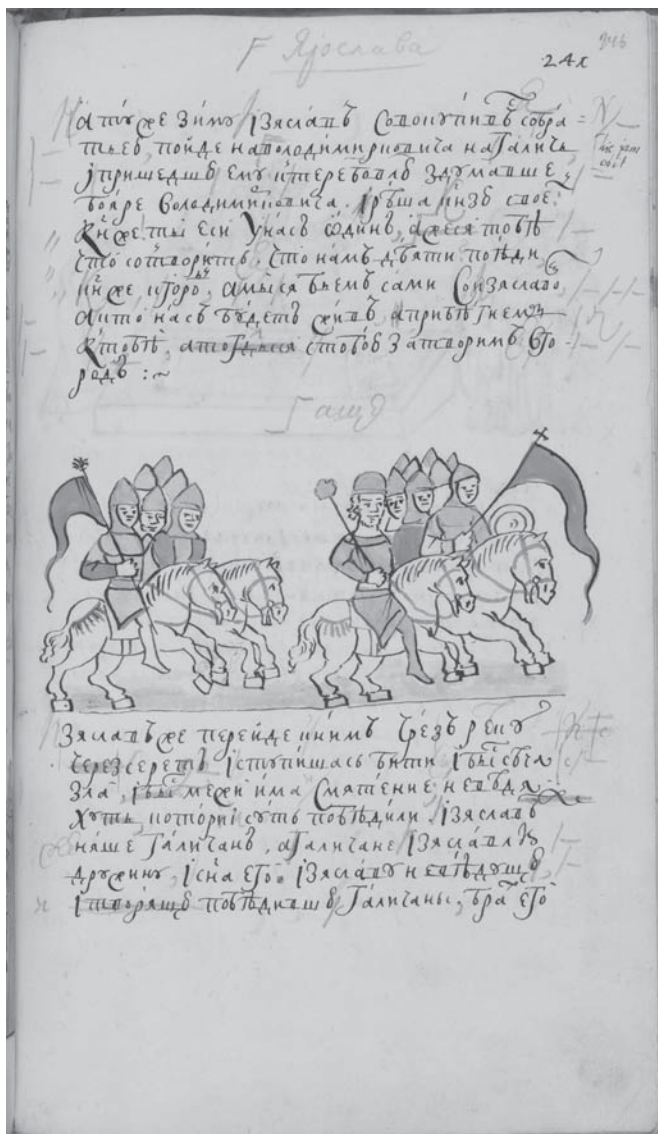 Ярослава
246
24х
А тоуже зиму Ізяславъ совокупивъ собра
тьею, пойде на володимирковича на Галичь
пришедшю ему ктеребовлю здумавше
бояре володимирковича. рѣша кнзю своє
Кнже ты еси у насъ ѡдинъ, ажеся тобѣ
што сотворитъ, што намъ дѣяти поѣди
кнже городу, амыся бьемъ сами Соизяславо
аито насъ будетъ живъ, априбѣгнем
Ктобѣ, атогда стобою затворимъ его
родѣ :~
Зяславъже перейде книмъ чрезъ реку
черезсеретъ, іступишась бити, і бысть сѣча
зла, і бысть межи има смятение, невѣдя
хуть которіи суть побѣдили. Ізяславъ
наше Галичанъ, аГаличане Ізяславлю
дружину, і сна его. Ізяславу невѣдущю
і творящю побѣдившю Галичаны, бра его